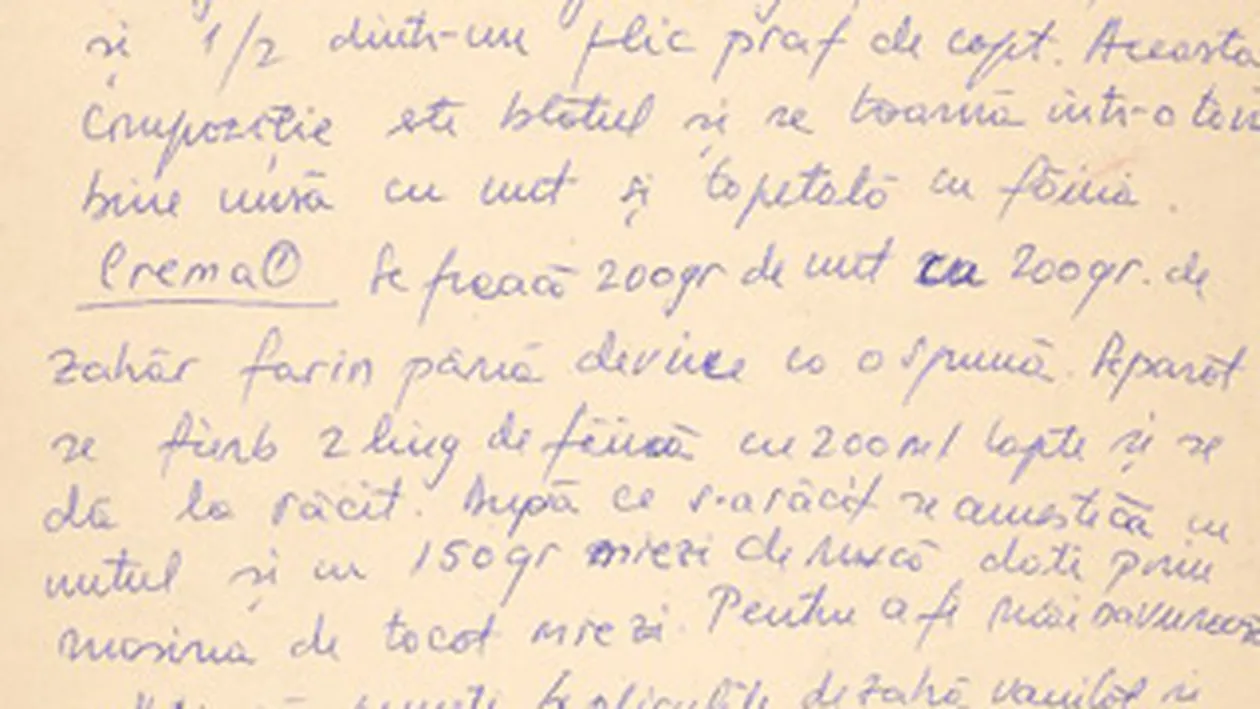 și 1/2 dintr-un plic praf de copt. Aceasta
compoziție este blatul și se toarnă într-o
bine unsă cu unt și tapetată cu făină.
Crema ① Se freacă 200gr de unt cu 200gr. de
zahăr farin până devine ca o spumă. Separat
se fierb 2 ling de făină cu 200ml lapte și se
dă la răcit. După ce s-a răcit se amestică cu
untul și cu 150gr miezi de nucă dați prin
mașina de tocat miezi. Pentru a fi mai
de zahăr vanilat și